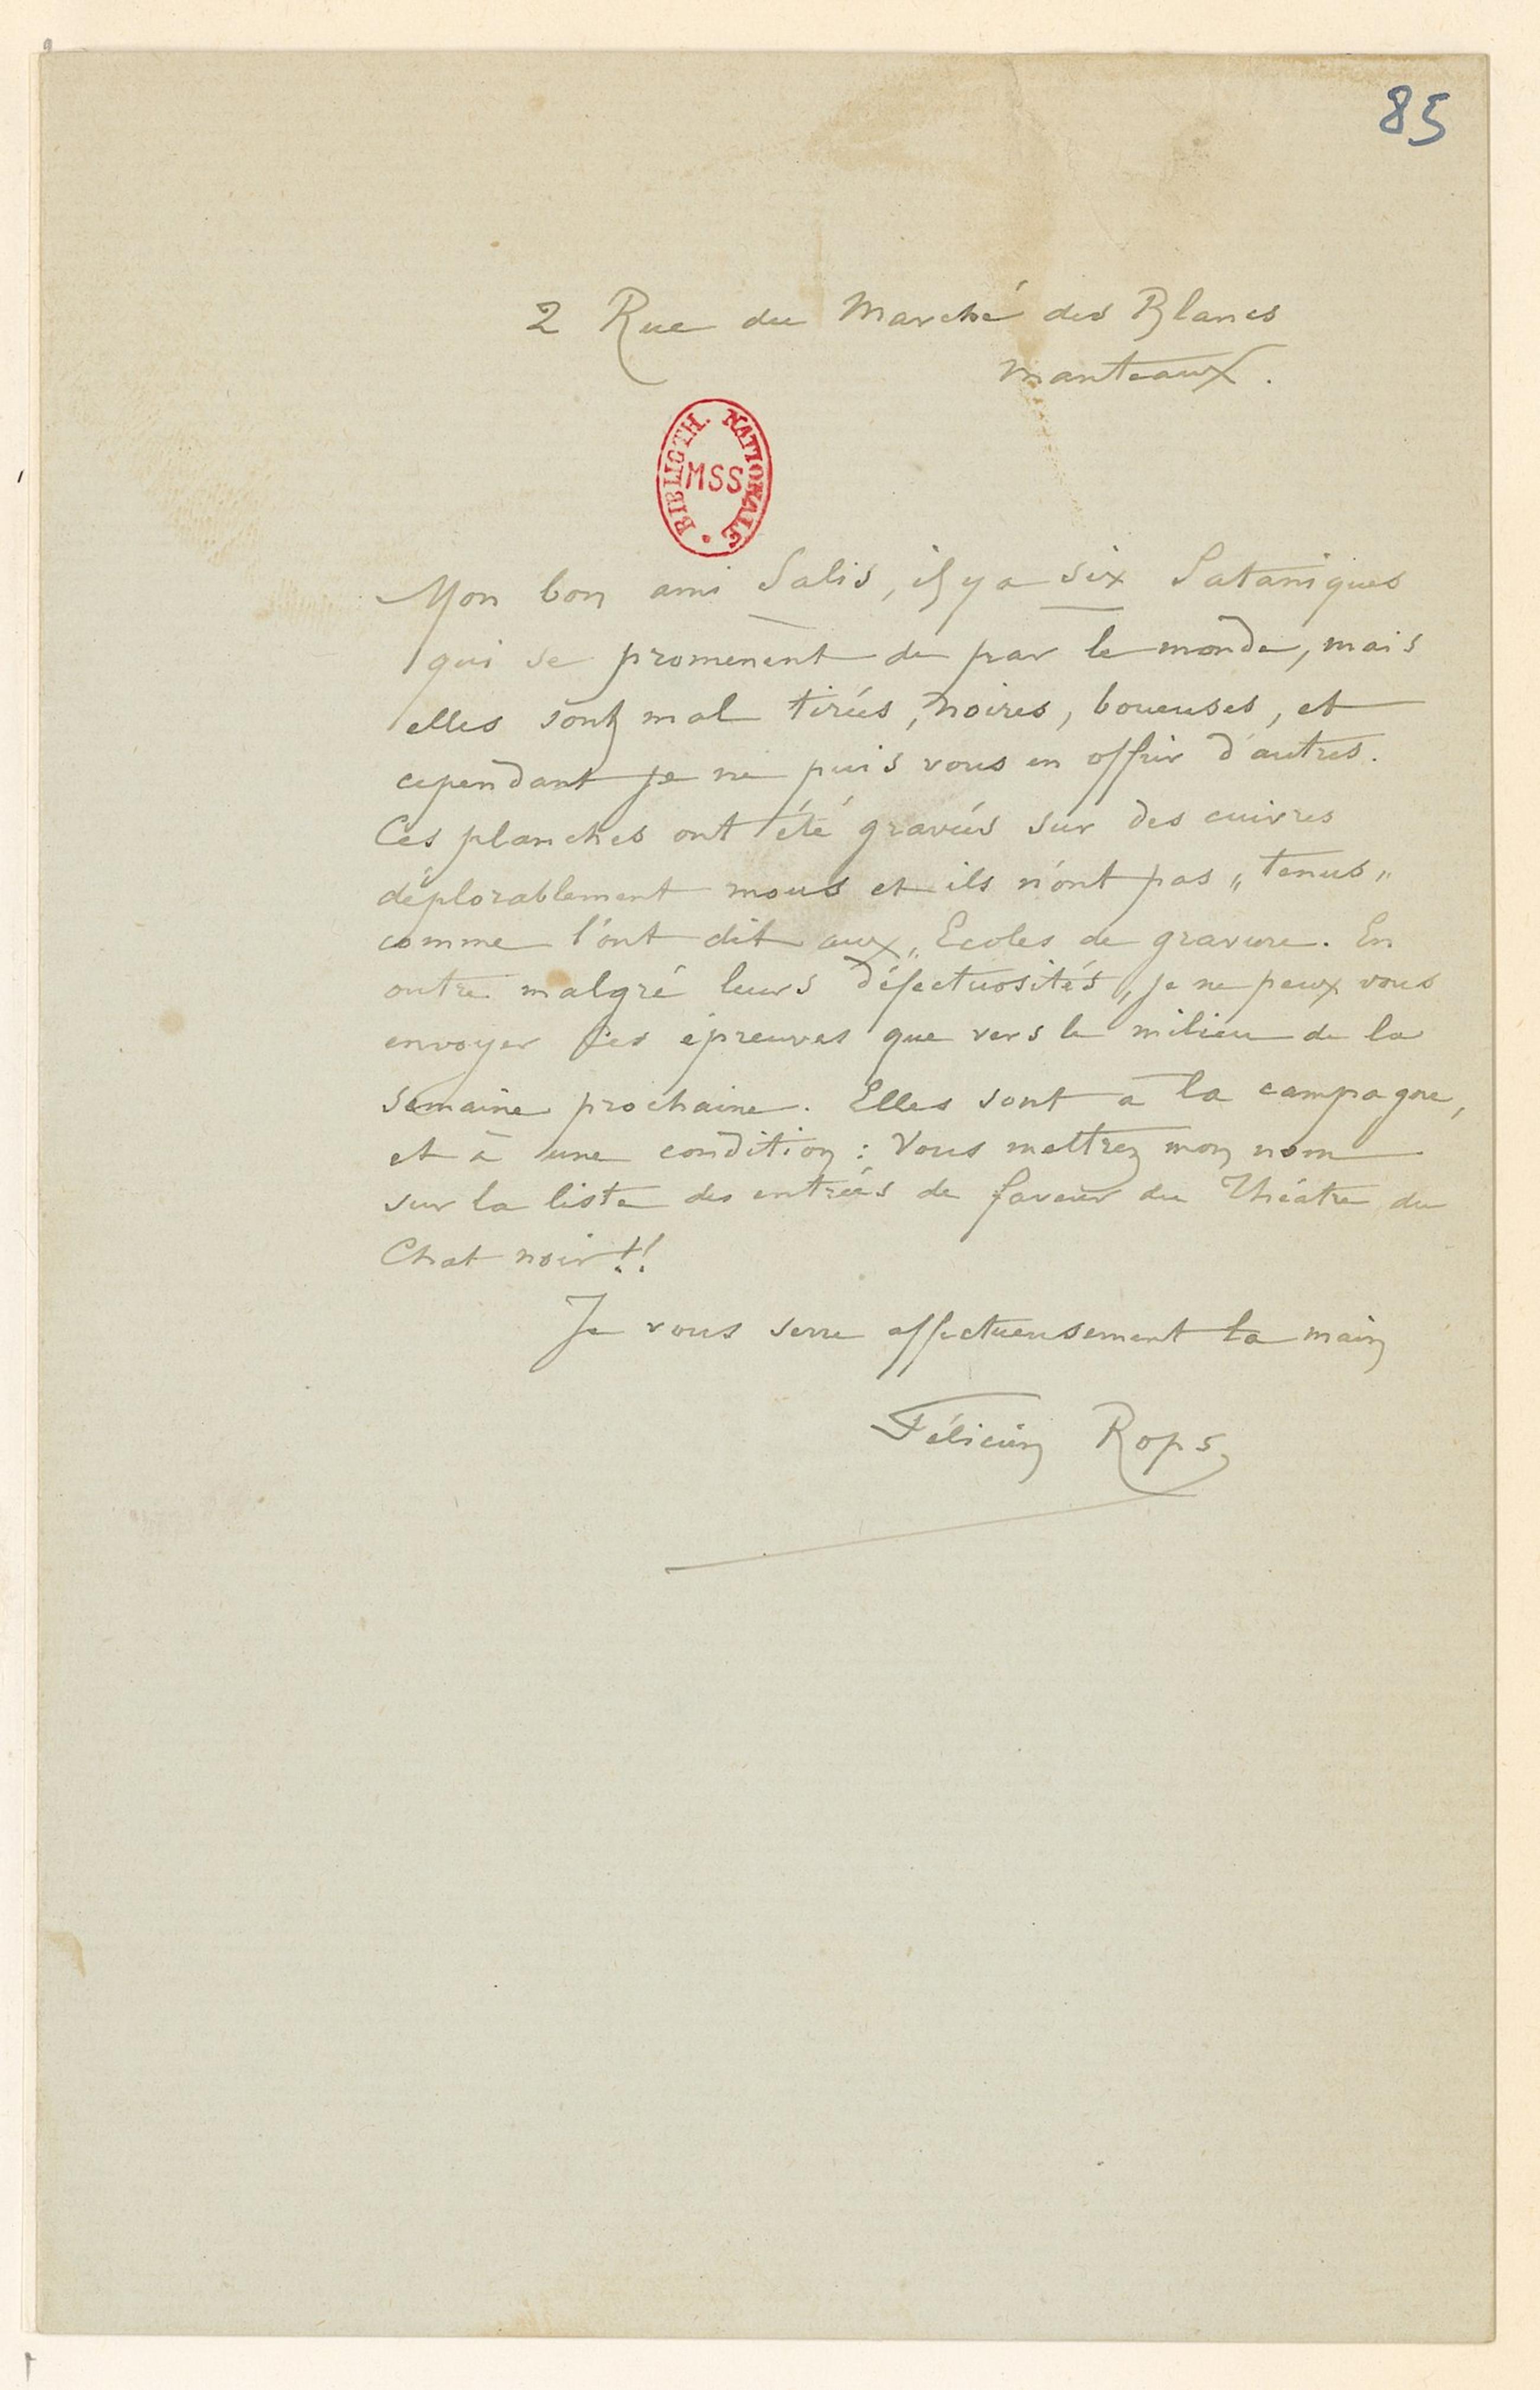 85
2 Rue du Marché des Blancs
Manteaux.
BIBLIOTH. NATIONALE
MSS
Mon bon ami Salis, il y a six Sataniques
qui se promenent de par le monde, mais
elles sont mal tirées, noires, boueuses, et
cependant je ne puis vous en offrir d'autres.
Ces planches ont été gravées sur des cuivres
déplorablement mous et ils n'ont pas „tenus„
comme l'ont dit aux „Ecoles de gravure. En
outre malgré leurs défectuosités„ je ne peux vous
envoyer ces épreuves que vers le milieu de la
semaine prochaine. Elles sont à la campagne,
et à une condition : Vous mettrez mon nom
sur la liste des entrées de faveur du Théatre du
Chat noir!!
Je vous serre affectueusement la main
Félicien Rops